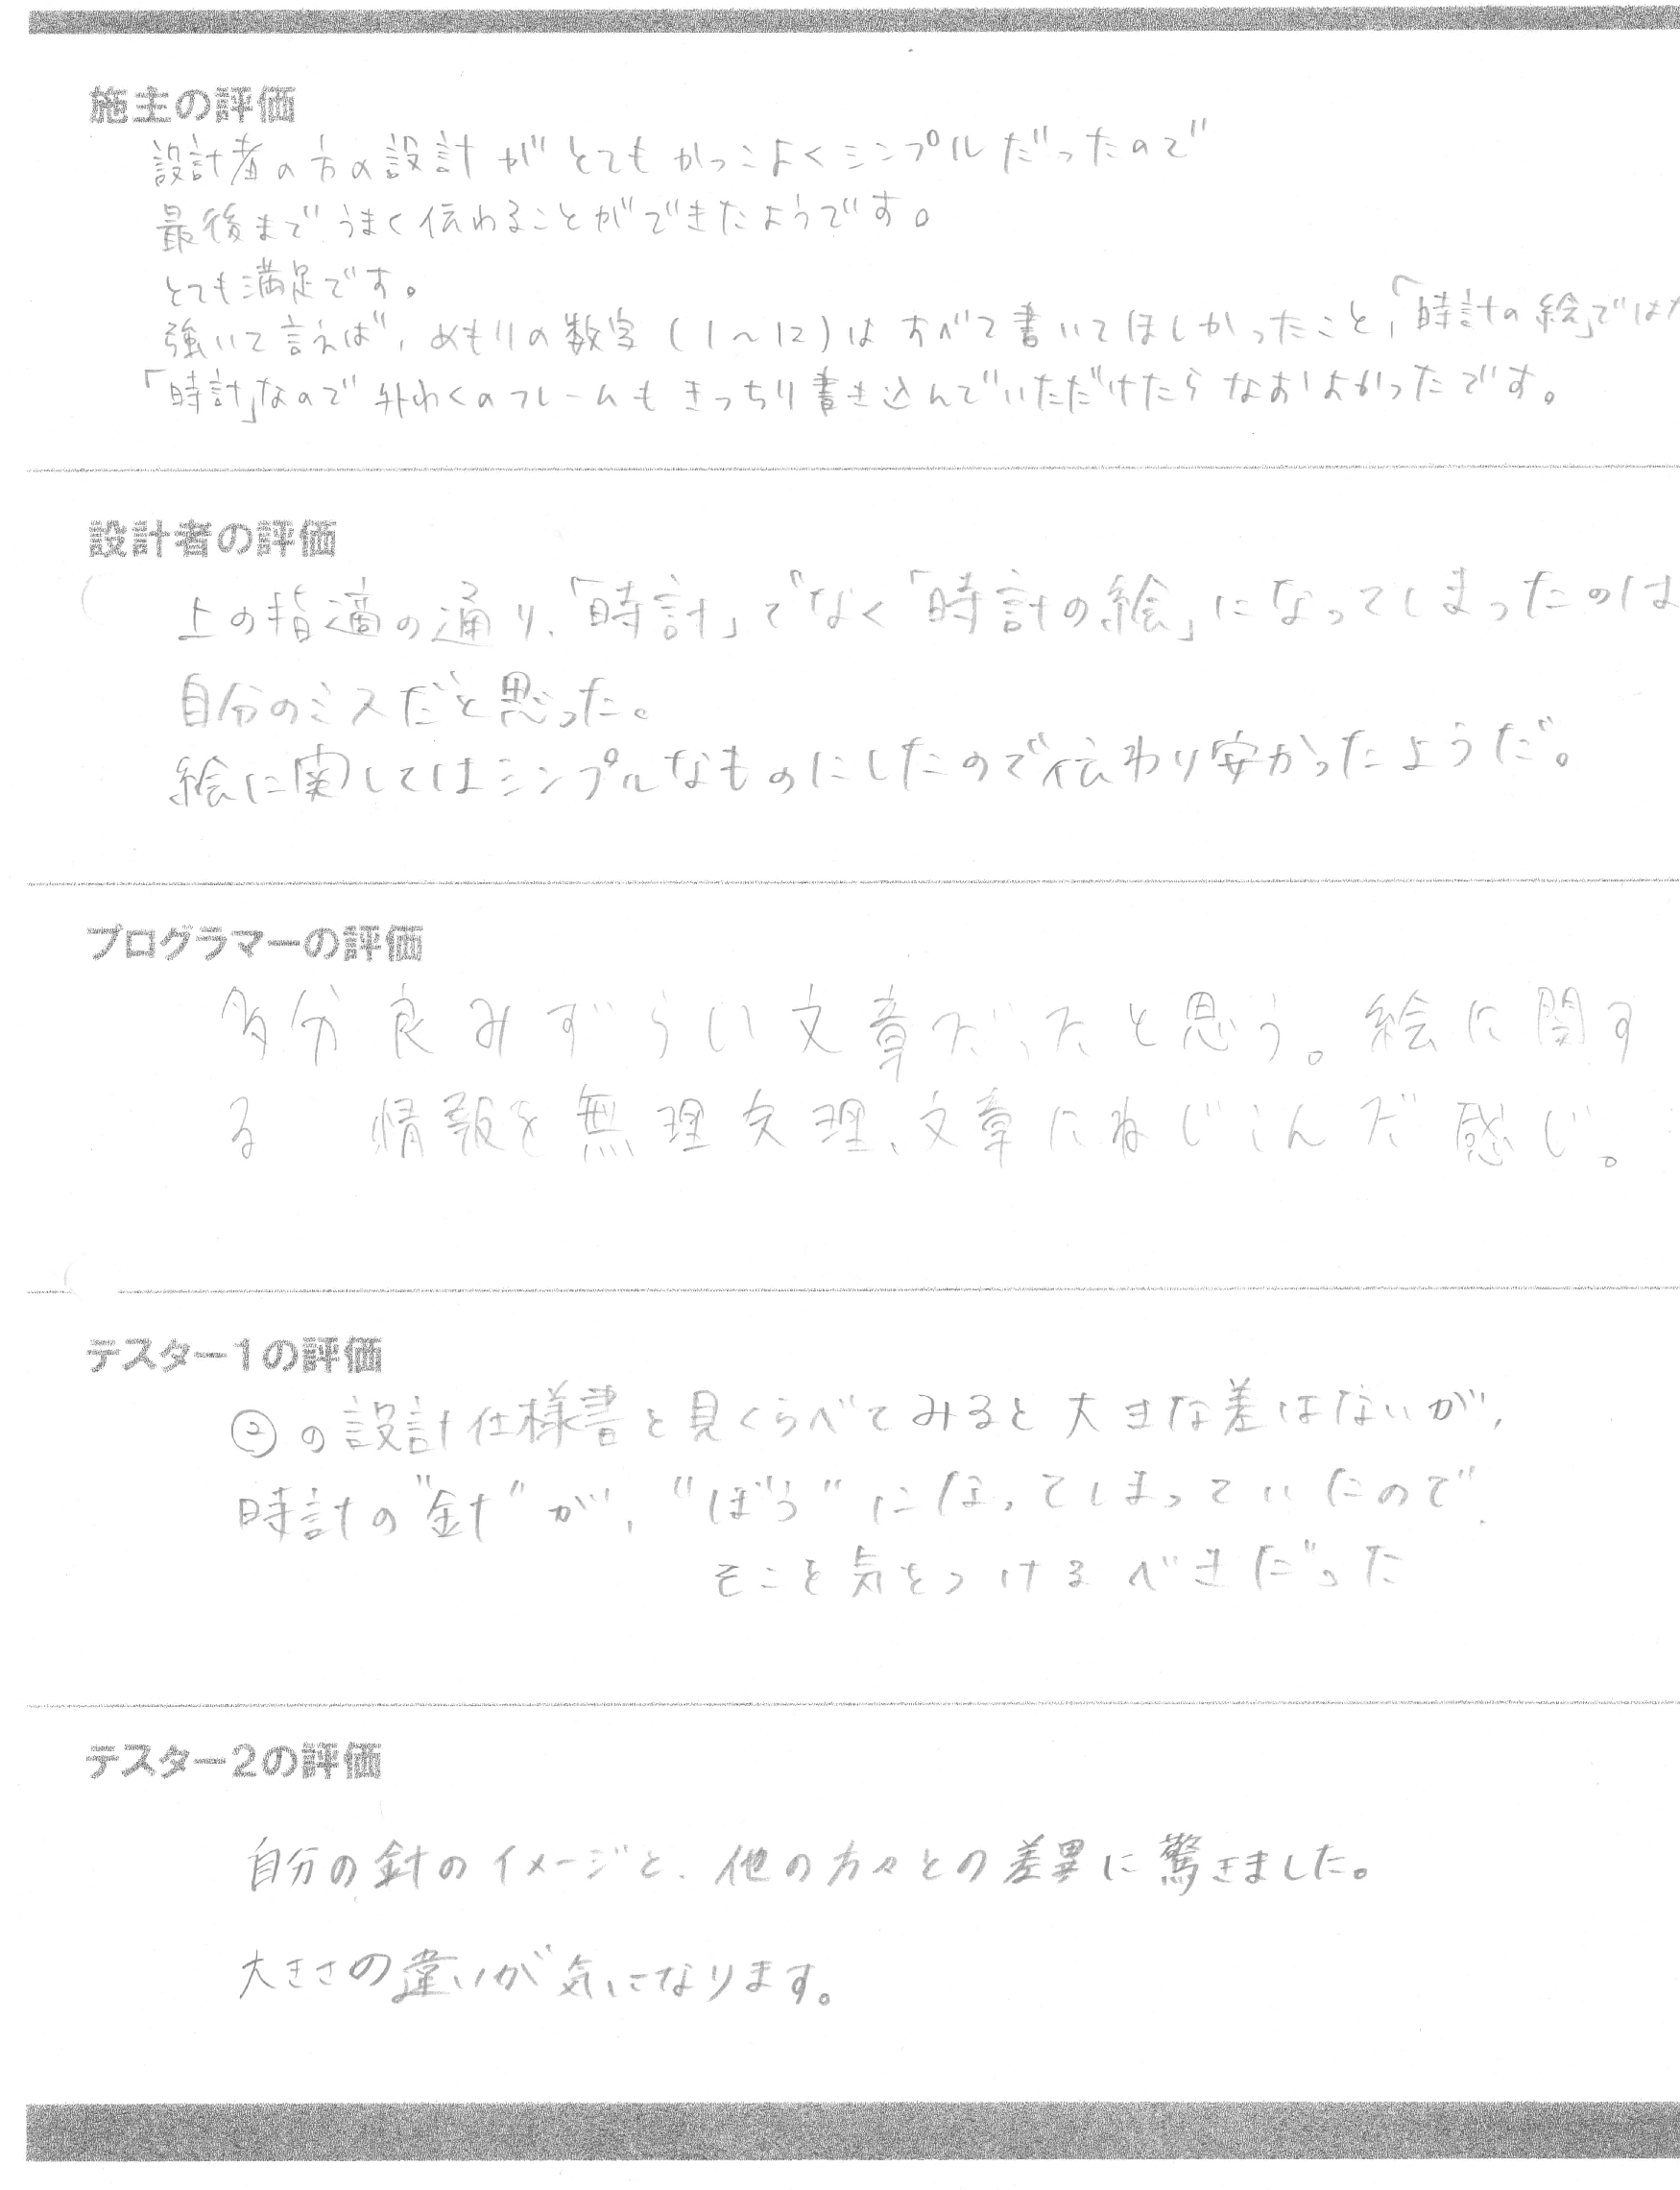 施主の評価
設計者の方の設計がとてもかっこよくシンプルだったので
最後までうまく伝わることができたようです。
とても満足です。
強いて言えば、めもりの数字(1〜12)はすべて書いてほしかったこと、「時計の絵」ではな
「時計」なので外わくのフレームもきっちり書き込んでいただけたらなおよかったです。
設計者の評価
上の指適の通り、「時計」でなく「時計の絵」になってしまったのは
自分のミスだと思った。
絵に関してはシンプルなものにしたので伝わり安かったようだ。
プログラマーの評価
多分良みずらい文章だったと思う。絵に関す
る 情報を無理矢理、文章にねじこんだ感じ。
テスター1の評価
②の設計仕様書と見くらべてみると大きな差はないが、
時計の"針"が、"ぼう"になってしまっていたので
そこを気をつけるべきだった
テスター2の評価
自分の針のイメージと、他の方々との差異に驚きました。
大きさの違いが気になります。